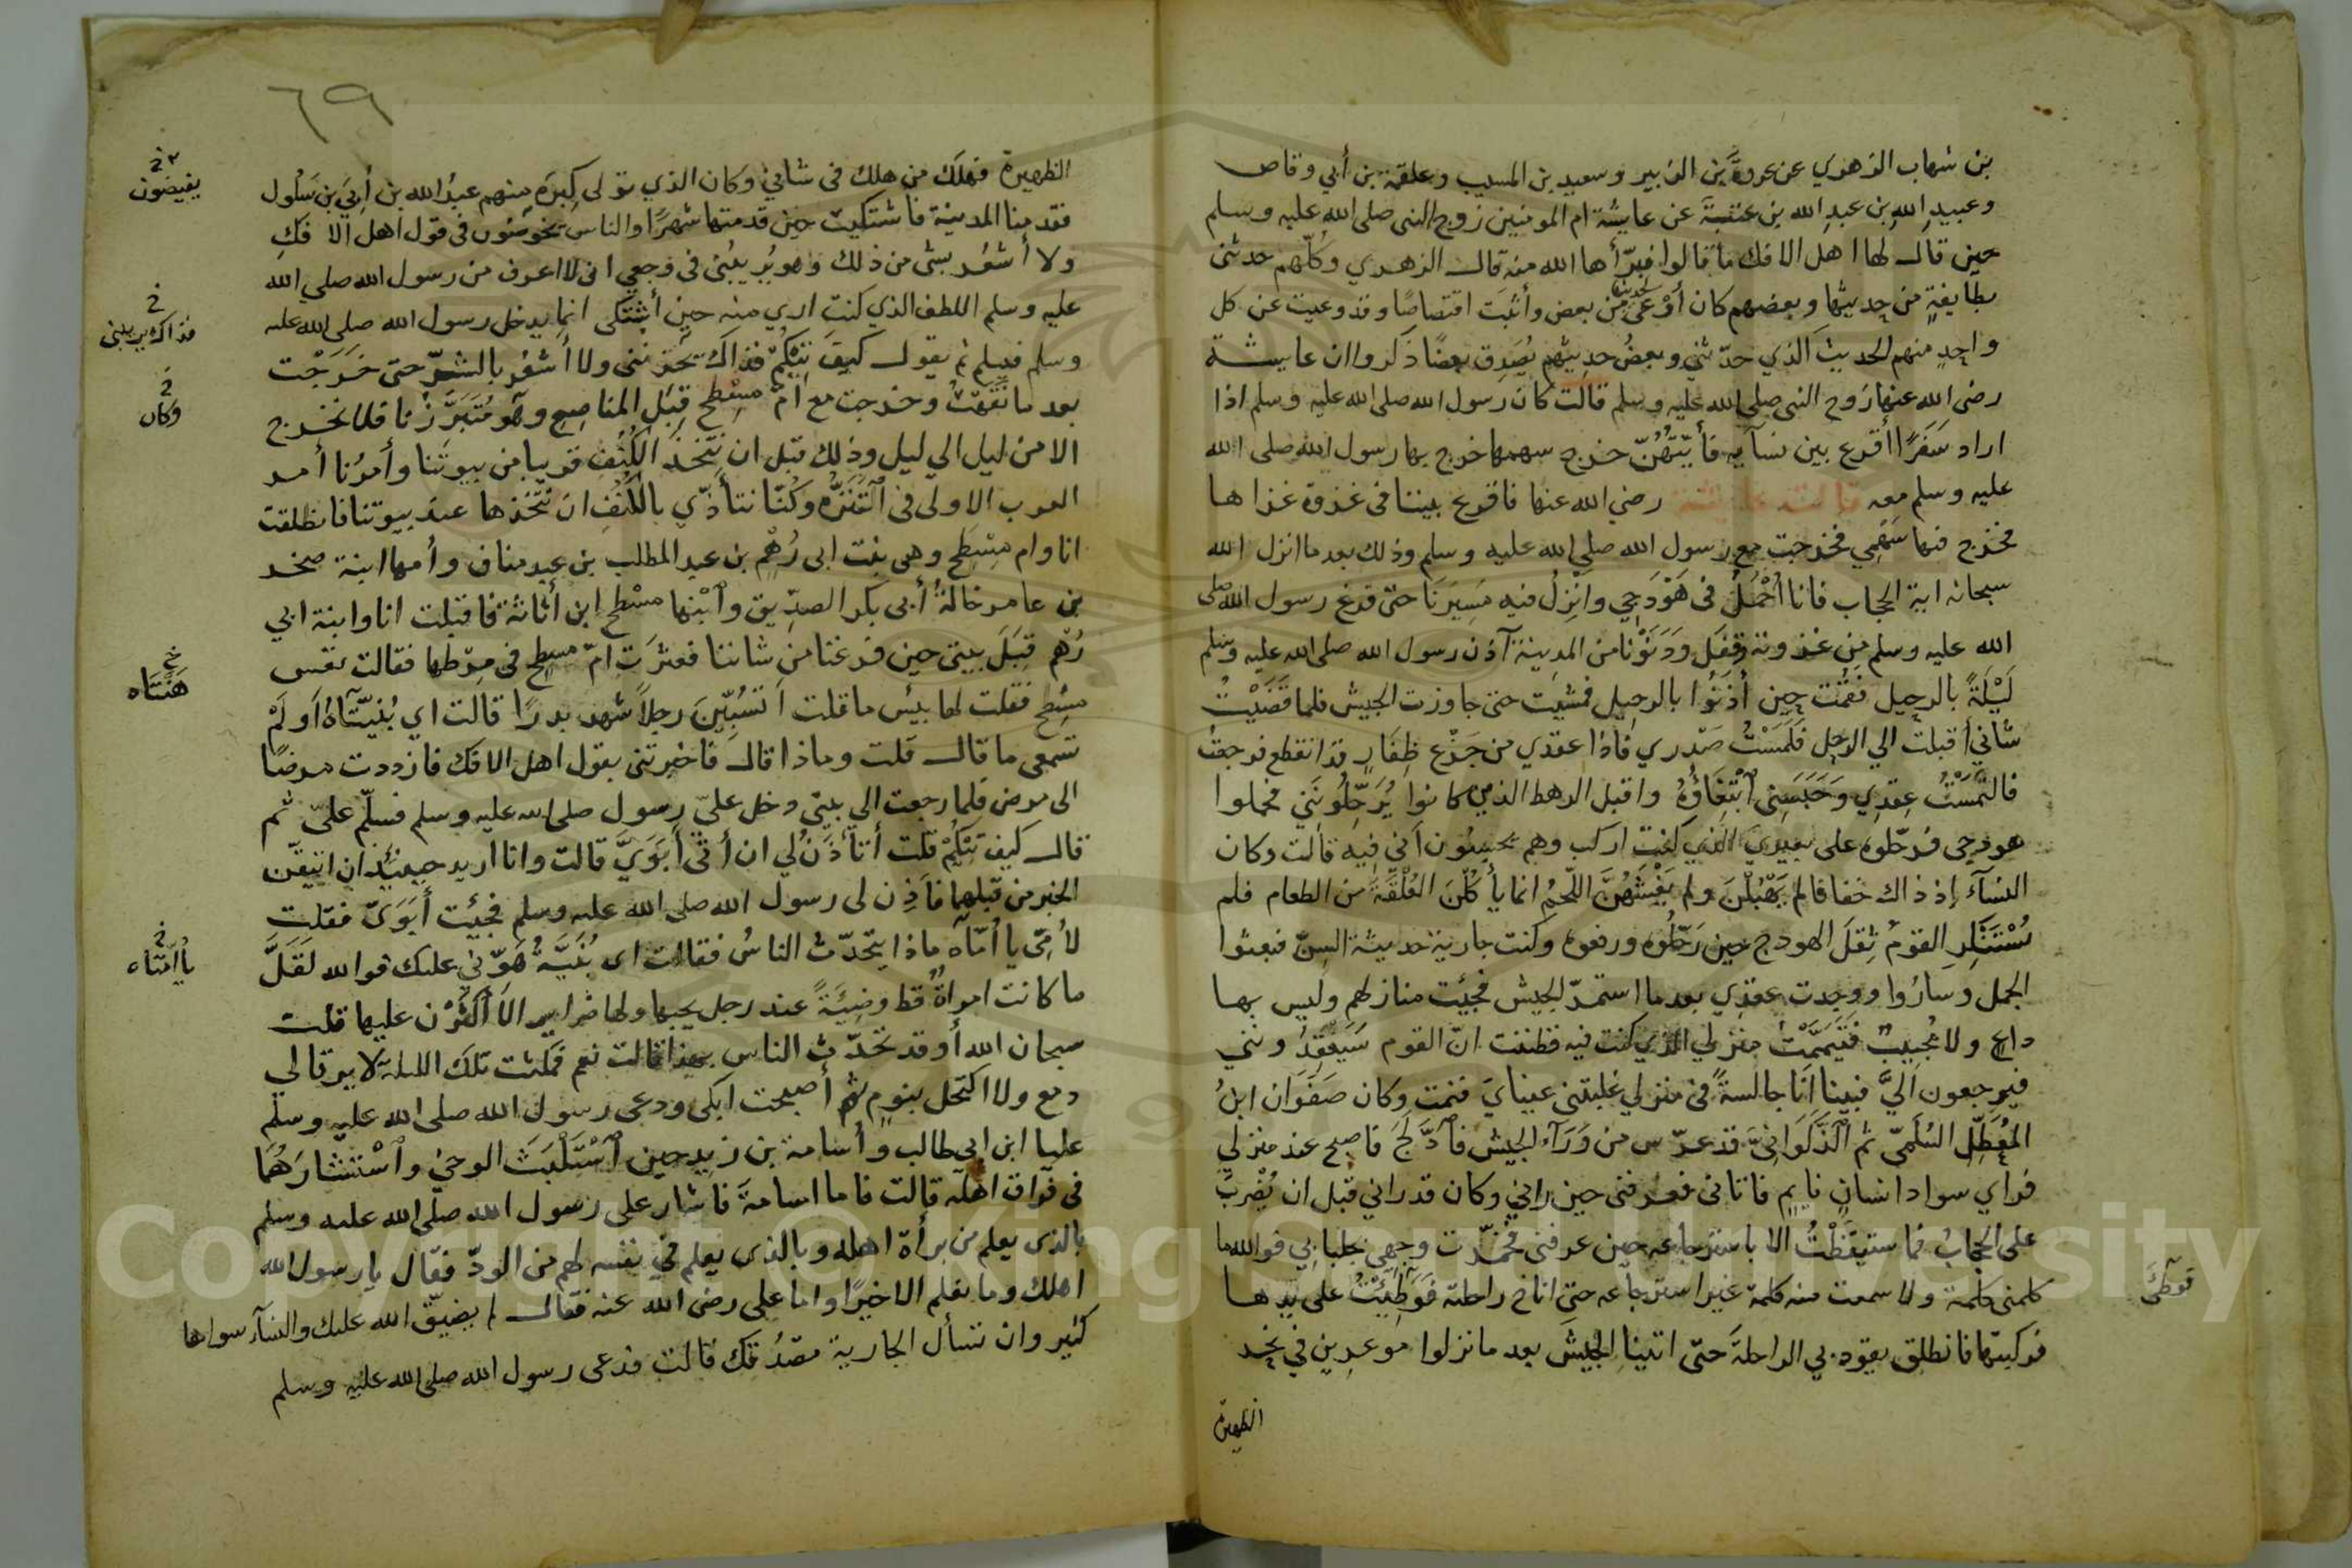 بن شهاب الزهري عن عروة بن الزبير وسعيد بن المسيب وعلقمة بن أبي وقاص
وعبيد الله بن عبد الله بن عتبة عن عايشة ام المومنين زوج النبي صلى الله عليه وسلم
حين قال لها اهل الافك ما قالوا فبرّأها الله منه قال الزهري وكلّهم حدثني
بطايفةٍ من حديثها وبعضهم كان أوْعى لحديثها من بعض وأثبَت اقتصاصًا وقد وعيت عن كل
واحِدٍ منهم الحديث الذي حدّثني وبعضُ حديثهم يُصَدِق بعضًا ذكروا ان عايشة
رضى الله عنها زوج النبى صلى الله عليه وسلم قالت كان رسول الله صلى الله عليه وسلم اذا
اراد سَفَرًا أقرع بين نسآيه فأيّتُهُنّ خرج سهمها خرج بها رسول الله صلى الله
عليه وسلم معه قالت عايشة رضي الله عنها فاقرع بيننا في غزوة غزاها
فخرج فيها سَهْمِي فخرجت مع رسول الله صلى الله عليه وسلم وذلك بعد ما انزل الله
سبحانه اية الحجاب فانا أُحْمَلُ في هَوْدَجِي وانزلُ فيه مَسِيرَنَا حتى فرغ رسول الله صلى
الله عليه وسلم مِن غزوته وقفَل ودَنَوْنا من المدينة آذن رسول الله صلى الله عليه وسلم
لَيْلَةً بالرحِيل فقُمْت حِين أُذَنُوا بالرحِيل فمشَيْت حتى جاوزت الجيش فلما قَضَيْتُ
شاني أقبلت الي الرحل فَلَمَسْتُ صَدْرِي فاذا عقدي من جَزْع ظِفَارِ قد انقطع فرجعت
فالْتَمَسْتُ عِقدِي وَحَبَسَنِى ابْتِغَاؤُهُ واقبل الرهط الذين كانوا يُرَحِّلُونَنِي فحملوا
هودجى فرحّلوه على بعيري الذي كنت اركب وهم يحسبُون أني فيه قالت وكان
النسآء إذ ذاك خفافا لم يَهْبُلْنَ ولم يَغْشَهُنَّ اللّحمُ انما يأكُلْنَ العُلْقَةَ من الطعام فلم
يُسْتَنْكِرِ القومُ ثِقَلَ الهودج حين رَحّلُوه ورفعوه وكنت جارية حديثة السِنّ فبعثوا
الجمل وسارُوا ووجدت عِقدِي بعد ما استمرّ الجيش فجئِت منازلهم وليس بها
داعٍ ولا مُجِيبٌ فتَيَمَّمْتُ منزلي الذي كنت فيه فظننت انّ القوم سَيَفْقِدُونني
فيرجعون اليَّ فبينا أنا جالسةً في منزلي غلبتني عيناي فنمت وكان صَفْوان ابنُ
المُعَطّل السُلَمِيّ ثم الذَّكْوَانِيَّ قد عرّس من وَرَآء الجيش فادّلَجَ فاصبح عند منزلي
فراي سواد انسانٍ نايِمٍ فاتانى فعرفنى حين رانِي وكان قد راني قبل ان يُضْربَ
على الحجابُ فما ستيقَظْتُ الا باسترجاعه حين عرفني فخمّرت وجهي بجلبابي فوالله ما
كلمنى كلمة ولا سمعت منه كلمة غير استرجاعه حتى اناخ راحلته فوَطِئْتُ على يَدِها
فركبتها فانطلق يقود بي الراحلةَ حتّى اتينا الجيشَ بعد ما نزلوا موغرِين في نحر
الظهيرة
فوطى
٦٩
الظهيرة فهلَك من هلك في شاني وكان الذي تولى كِبرَه منهم عبدُ الله بن أُبَي بن سَلُول
فقدمنا المدينة فاشتكيت حِين قدمتها شهرًا والناس يخوضُون في قول اهل الافكِ
ولا أشعُر بشى من ذلك وهو يُرِيبُني في وجعي اني لا اعرف من رسول الله صلى الله
عليه وسلم اللطف الذي كنت اري منه حين أشتكى انما يدخل رسول الله صلى الله عليه
وسلم فيسلم ثم يقول كيفَ تِيْكُمْ فذاك يَحْزُنُني ولا أشعُر بالشرّ حتى خرَجْت
بعد ما نقَهْتُ وخرجت مع امّ مِسْطح قِبَل المناصِع وهو مُتَبَرَّزُنا فلا نخرج
الا من ليل الي ليل وذلك قبل ان نتّخذ الكُنُف قريبا من بيوتَنا وأمرُنا أمر
العرب الاولى في التَنَزُّه وكُنّا نتأذّي بالكُنُفِ ان نَتّخذها عند بيوتنا فانطلقت
انا وام مِسْطَح وهى بنت ابى رُهْمِ بن عبد المطلب بن عبد مناف وأمها ابنة صخر
بن عامر خالةُ أبى بكر الصِدِّيق وابْنها مسْطح ابن أثاثة فاقبلت انا وابنة ابي
رُهْم قِبَلَ بيتى حين فرغنا من شاننا فعثرَت امّ مسطح في مِرْطها فقالت تعس
مسْطح فقلت لها بيْس ما قلت أتسُبّينَ رجلاً شهد بدرًا قالت اي هنتاه أوَلَمْ
تسمعى ما قال قلت وماذا قال فاخبرتنى بقول اهل الافك فازددت مرضًا
الى مرض فلما رجعت الي بيتي دخل علىّ رسول صلى الله عليه وسلم فسلّم علىّ ثم
قال كيف تيكُمْ قلت أتأذنُ لي ان أتى أبَوَيَّ قالت وانا اريد حينئِذٍ ان اتيقّن
الخبر من قبلهما فاذِن لى رسول الله صلى الله عليه وسلم فجِئت أبَوَىّ فقلت
لأمّى يا أمّاه ماذا يتحدّث الناسُ فقالت اى بُنَيَّةُ هَوّنِي عليك فوالله لقَلَّ
ما كانت امراةٌ قط وضِيئَةً عند رجل يحبها ولها ضراير الا أكثَرْن عليها قلت
سبحان الله أوقد تحدّث الناس بهذا قالت نعم فمكثت تلك الليلة لا يرقا لي
دمع ولا اكتحل بنومٍ ثم أصبحت ابكى ودعى رسول الله صلى الله عليه وسلم
عليا ابن ابى طالب وأسامة بن زيد حين اسْتَلْبَثَ الوحىُ واسْتَشارَهُمَا
في فراق اهله قالت فاما اسامةَ فاشار على رسول الله صلى الله عليه وسلم
بالذى يعلم من برأة اهله وبالذى يعلم في نفسه لهم من الودّ فقال يا رسول الله
اهلك وما نعلم الا خيرًا واما على رضى الله عنه فقال لم يضيّق الله عليك والنسآء سواها
كثير وان تسأل الجارية تصدُقك قالت فدعى رسول الله صلى الله عليه وسلم
يفيضون
فذاك يريبنى
وكان
هَنْتَاه
يا أمتاه